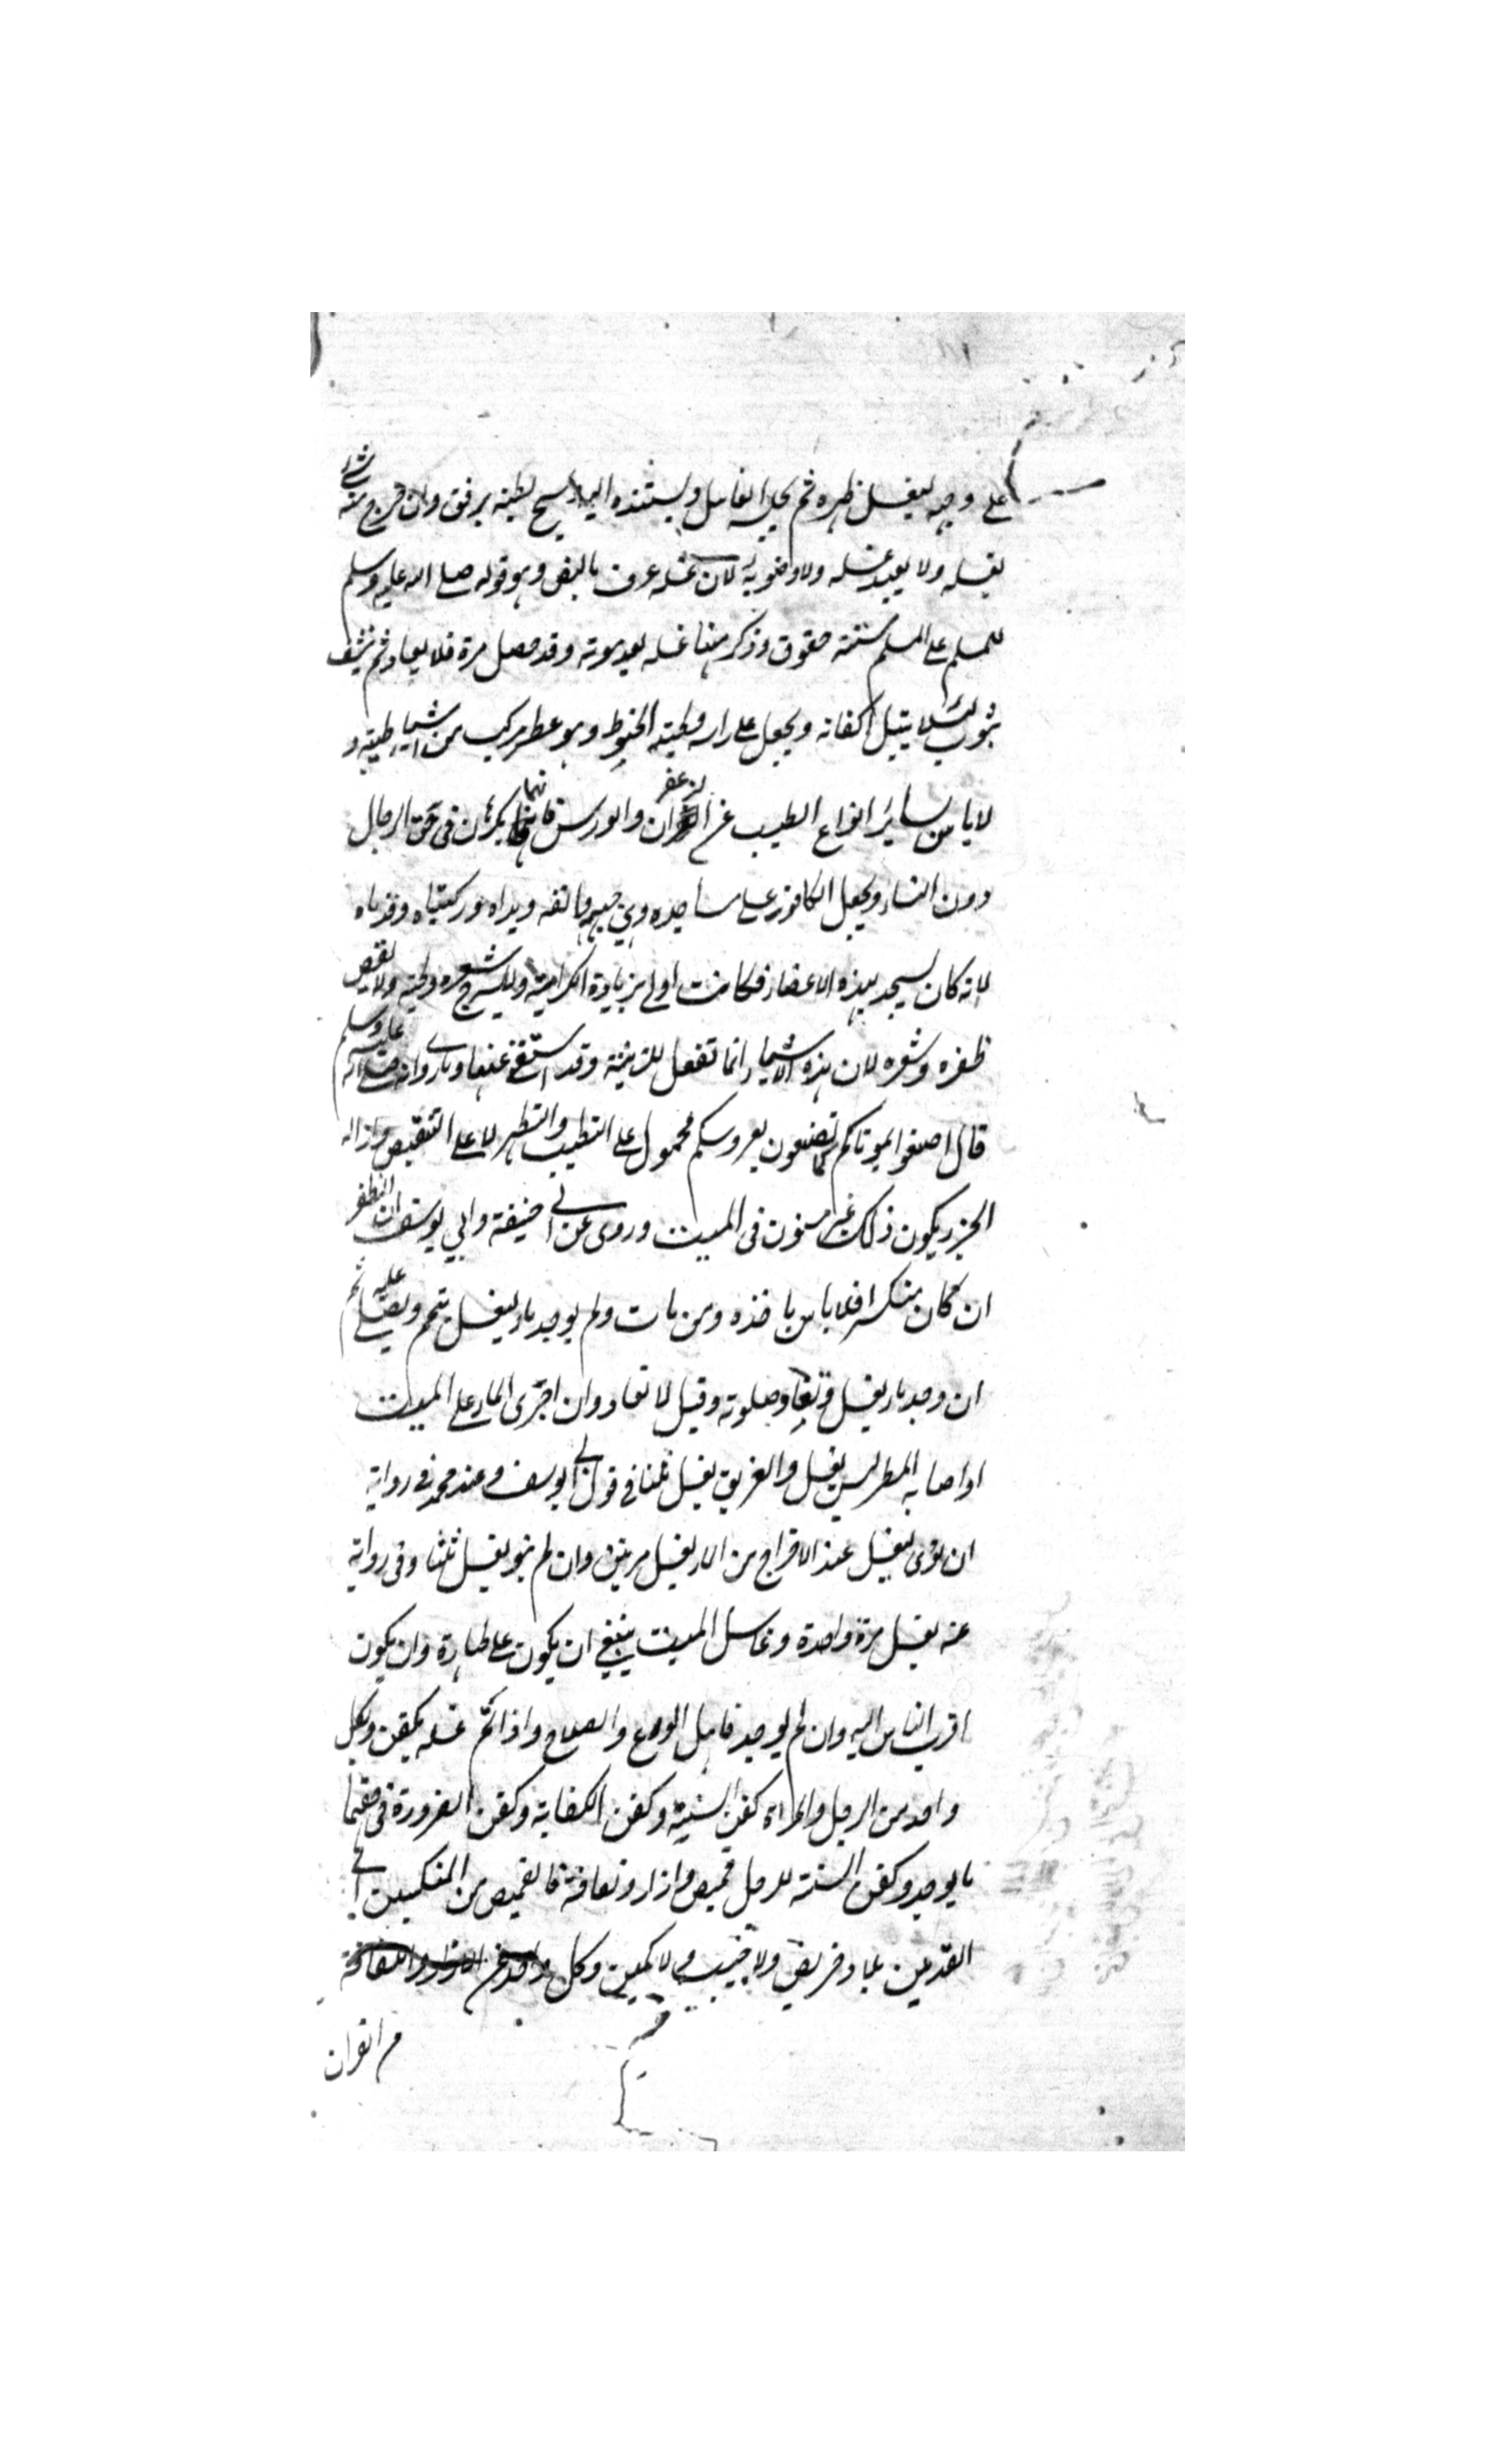 على وجهه ليغسل ظهره ثم يجلسه الغاسل ويستنده اليه ويمسح بطنه برفق وان خرج منه شئ
يغسله ولا يعيد غسله ولا وضوءه لان غسله عرف بالنص وهو قوله صلى الله عليه وسلم
للمسلم على المسلم ستة حقوق وذكر منها غسله بعد موته وقد حصل مرة فلا يعاد ثم ينشف
بثوب لئلا يبتل اكفانه ويجعل على راسه ولحيته الحنوط وهو عطر مركب من اشياء طيبة و
لا باس بسائر انواع الطيب غير الزعفران والورس فانهما يكرهان في حق الرجال
دون النساء ويجعل الكافور على مساجده وهي جبهته وانفه ويداه وركبتاه وقدماه
لانه كان يسجد بهذه الاعضاء فكانت اولى بزيادة الكرامة ولا يسرح شعره ولحيته ولا يقص
ظفره وشعره لان هذه الاشياء انما تفعل للزينة وقد استغنى عنها وما روى انه صلى الله عليه وسلم
قال اصنعوا بموتاكم كما تصنعون بعروسكم محمول على التطيب والتطهر لا على التنقيص وازالة
الجزء يكون ذلك غير مسنون في الميت وروى عن ابي حنيفة وابي يوسف ان الظفر
ان كان منكسرا فلا باس باخذه ومن مات ولم يوجد ماء ليغسل يتمم ويصلى عليه ثم
ان وجد ماء يغسل وتعاد صلوته وقيل لا تعاد وان اجرى الماء على الميت
او اصابه المطر ليس بغسل والغريق يغسل ثلثا في قول ابي يوسف وعند محمد في رواية
ان نوى الغسل عند الاخراج من الماء يغسل مرتين وان لم ينو يغسل ثلثا وفي رواية
عنه يغسل مرة واحدة وغاسل الميت ينبغي ان يكون على طهارة وان يكون
اقرب الناس اليه وان لم يوجد فاهل الورع والصلاح واذا تم غسله يكفن ولكل
واحد من الرجل والمراة كفن السنة وكفن الكفاية وكفن الضرورة في حقهما
ما يوجد وكفن السنة للرجل قميص وازار ولفافة فالقميص من المنكبين الى
القدمين بلا دخريص ولا جيب ولا كمين وكل واحد من الازار واللفافة
من القران